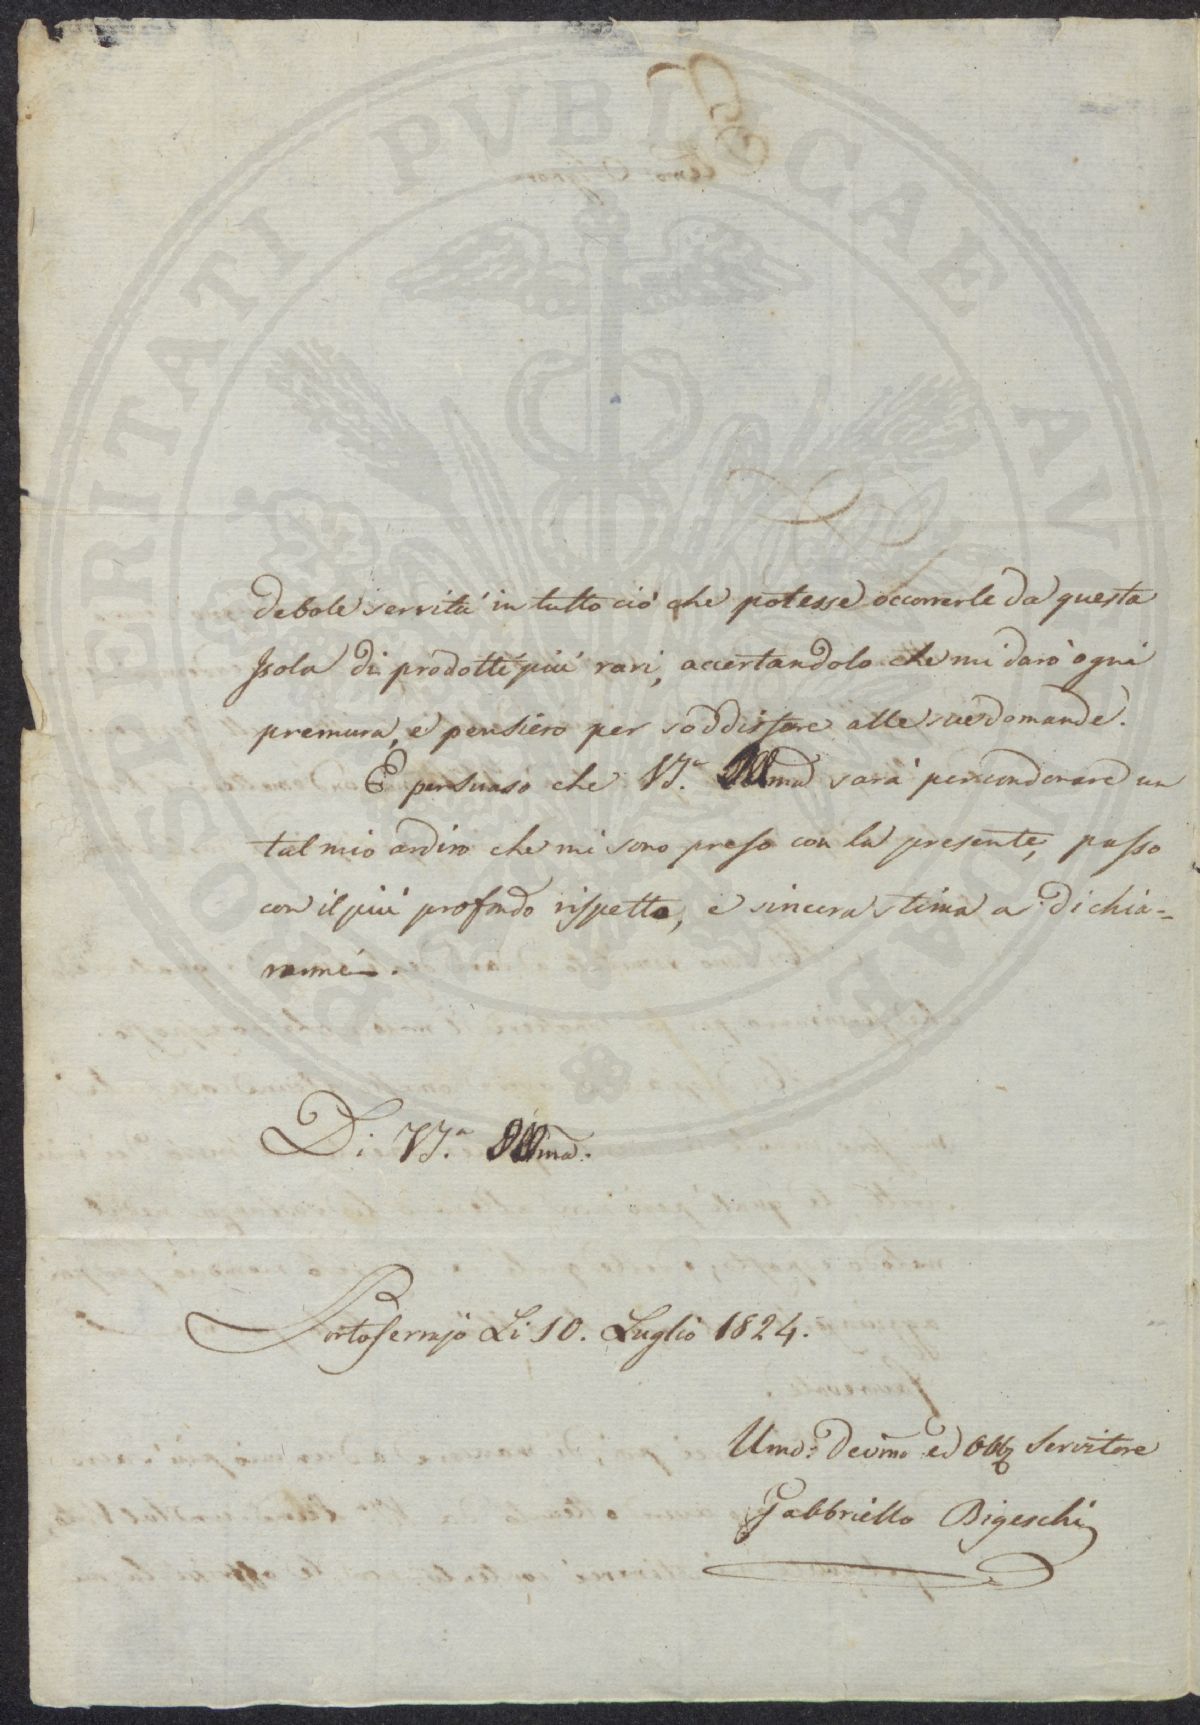 debole servitù in tutto ciò che potesse occorrerle da questa
Isola di prodotti più rari, accertandolo che mi darò ogni
premura, e pensiero per soddisfare alle sue domande.
E persuaso che VS.a Illma sarà per condonare un
tal mio ardire che mi sono preso con la presente, passo
con il più profondo rispetto, e sincera stima a dichia=
rarmi.
Di VS.a Illma.
Portoferrajo Li 10. Luglio 1824.
Umo: Devmo ed Obb Servitore
Gabbriello Bigeschi
PROSPERITATI PVBLICAE AVGENDAE